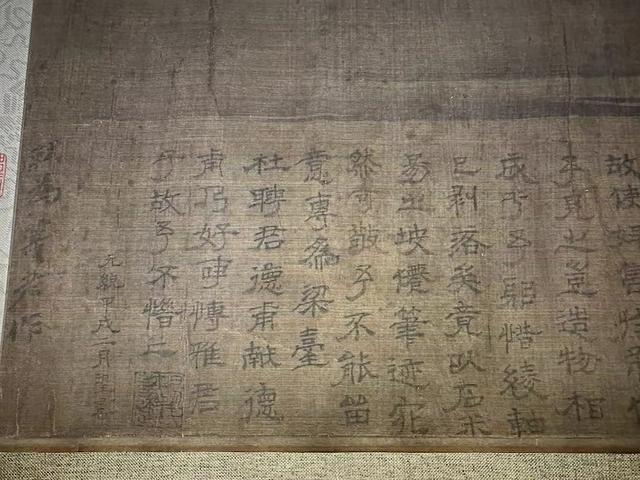 故使好
予見之豈造物相
成於予耶惜綾軸
已剝落矣竟以
易之坡僊筆迹宛
然可敬予不能留
意專為梁臺
杜聘君德甫獻德
甫乃好事博雅君
子故予不惜云
元統甲戌二月
就為君作